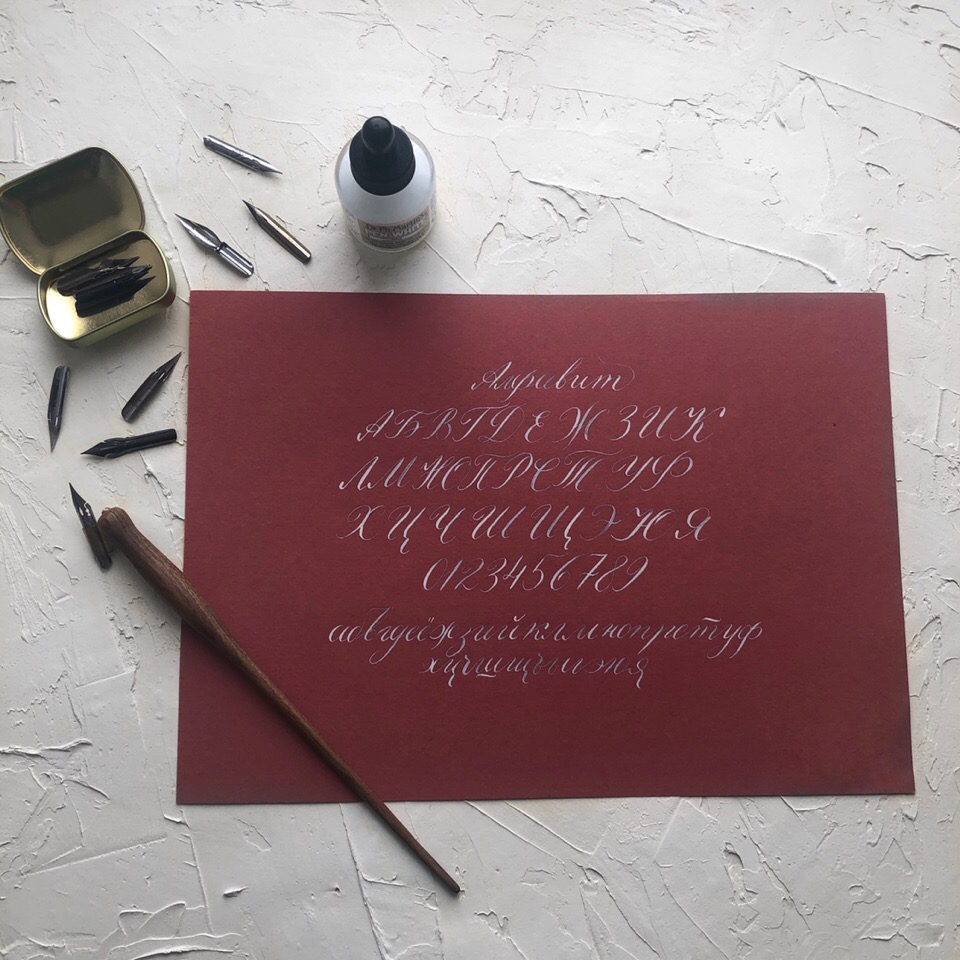 Dr. Ph. Martin's
PEN WHITE
Алфавит
А Б В Г Д Е Ж З И К
Л М Н О П Р С Т У Ф
Х Ц Ч Ш Щ Э Ю Я
0123456789
абвгдеёжзийклмнопрстуф
хцчшщъыьэюя